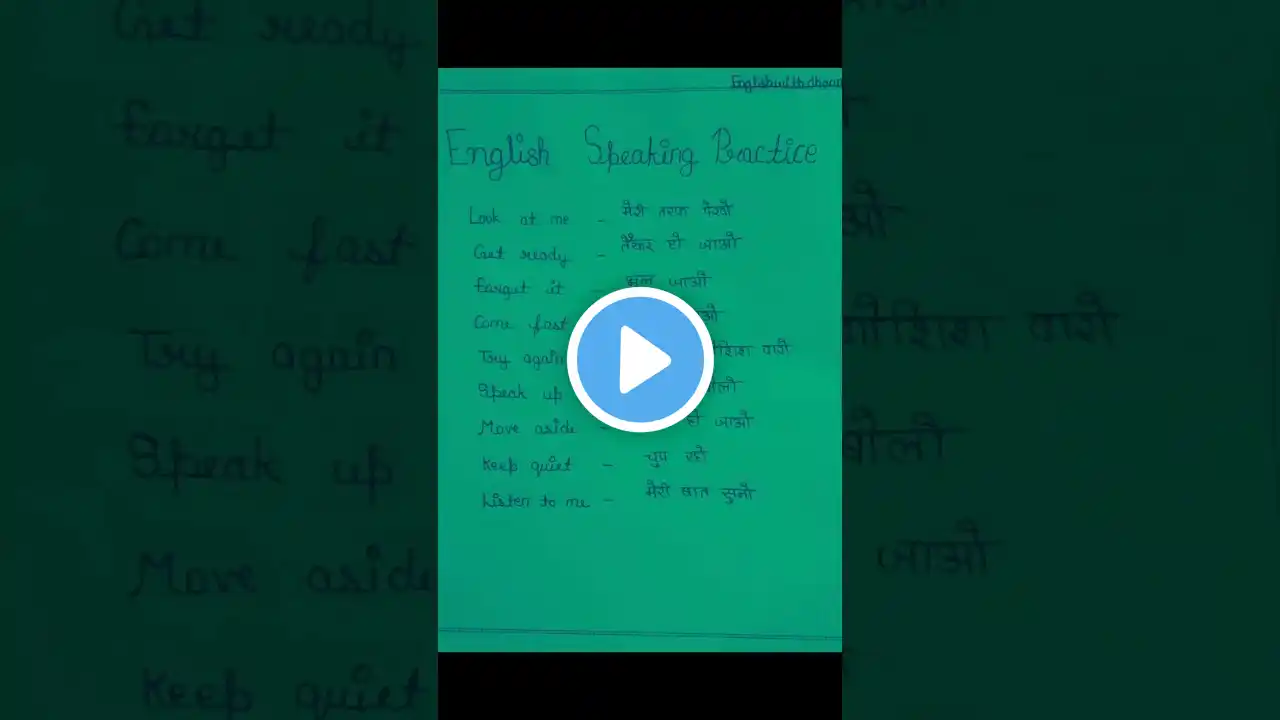 English Speaking Practice
Look at me - मेरी तरफ देखो
Get ready - तैयार हो जाओ
Forget it - भूल जाओ
Come fast
Try again करो
Speak up
Move aside - हो जाओ
Keep quiet - चुप रहो
Listen to me - मेरी बात सुनो